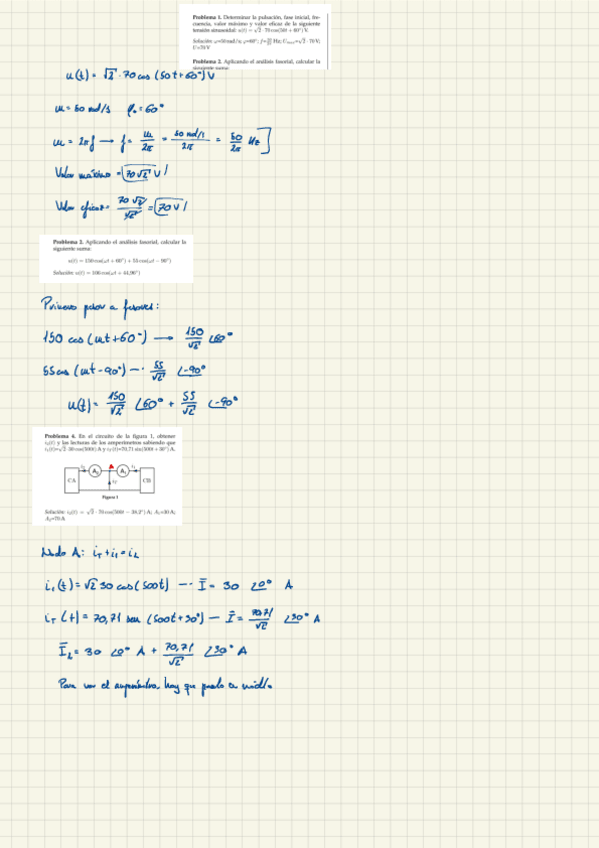 Problema 1. Determinar la pulsación, fase inicial, fre-
cuencia, valor máximo y valor eficaz de la siguiente
tensión sinusoidal: u(t) = √2 · 70 cos(50t + 60°) V.
Solución: ω=50 rad/s; φ=60°; f=50/2π Hz; Umax=√2 · 70 V;
U=70 V
Problema 2. Aplicando el análisis fasorial, calcular la
siguiente suma:
u(t) = √2 · 70 cos (50t + 60°) V
ω = 50 rad/s φ₀ = 60°
ω = 2πf → f = ω/2π = 50 rad/s / 2π = 50/2π Hz
Valor máximo = 70√2 V
Valor eficaz = 70√2/√2 = 70 V
Problema 2. Aplicando el análisis fasorial, calcular la
siguiente suma:
u(t) = 150 cos(ωt + 60°) + 55 cos(ωt − 90°)
Solución: u(t) = 106 cos(ωt + 44,96°)
Primero pasar a fasores:
150 cos (ωt + 60°) → 150/√2 ∠60°
55 cos (ωt - 90°) → 55/√2 ∠-90°
u(t) = 150/√2 ∠60° + 55/√2 ∠-90°
Problema 6. En el circuito de la figura 1, obtener
i₂(t) y las lecturas de los amperímetros sabiendo que
i₁(t)=√2 · 30 cos(500t) A y iT(t)=70,71 sin(500t + 30°) A.
CA A₂ A A₁ CB
iT
Figura 1
Solución: i₂(t) = √2 · 70 cos(500t − 38,2°) A; A₁=30 A;
A₂=70 A
Nudo A: iT + i₁ = i₂
i₁(t) = √2 30 cos (500t) → I = 30 ∠0° A
iT(t) = 70,71 sen (500t + 30°) → I = 70,71/√2 ∠30° A
I₂ = 30 ∠0° A + 70,71/√2 ∠30° A
Para ver el amperímetro, hay que